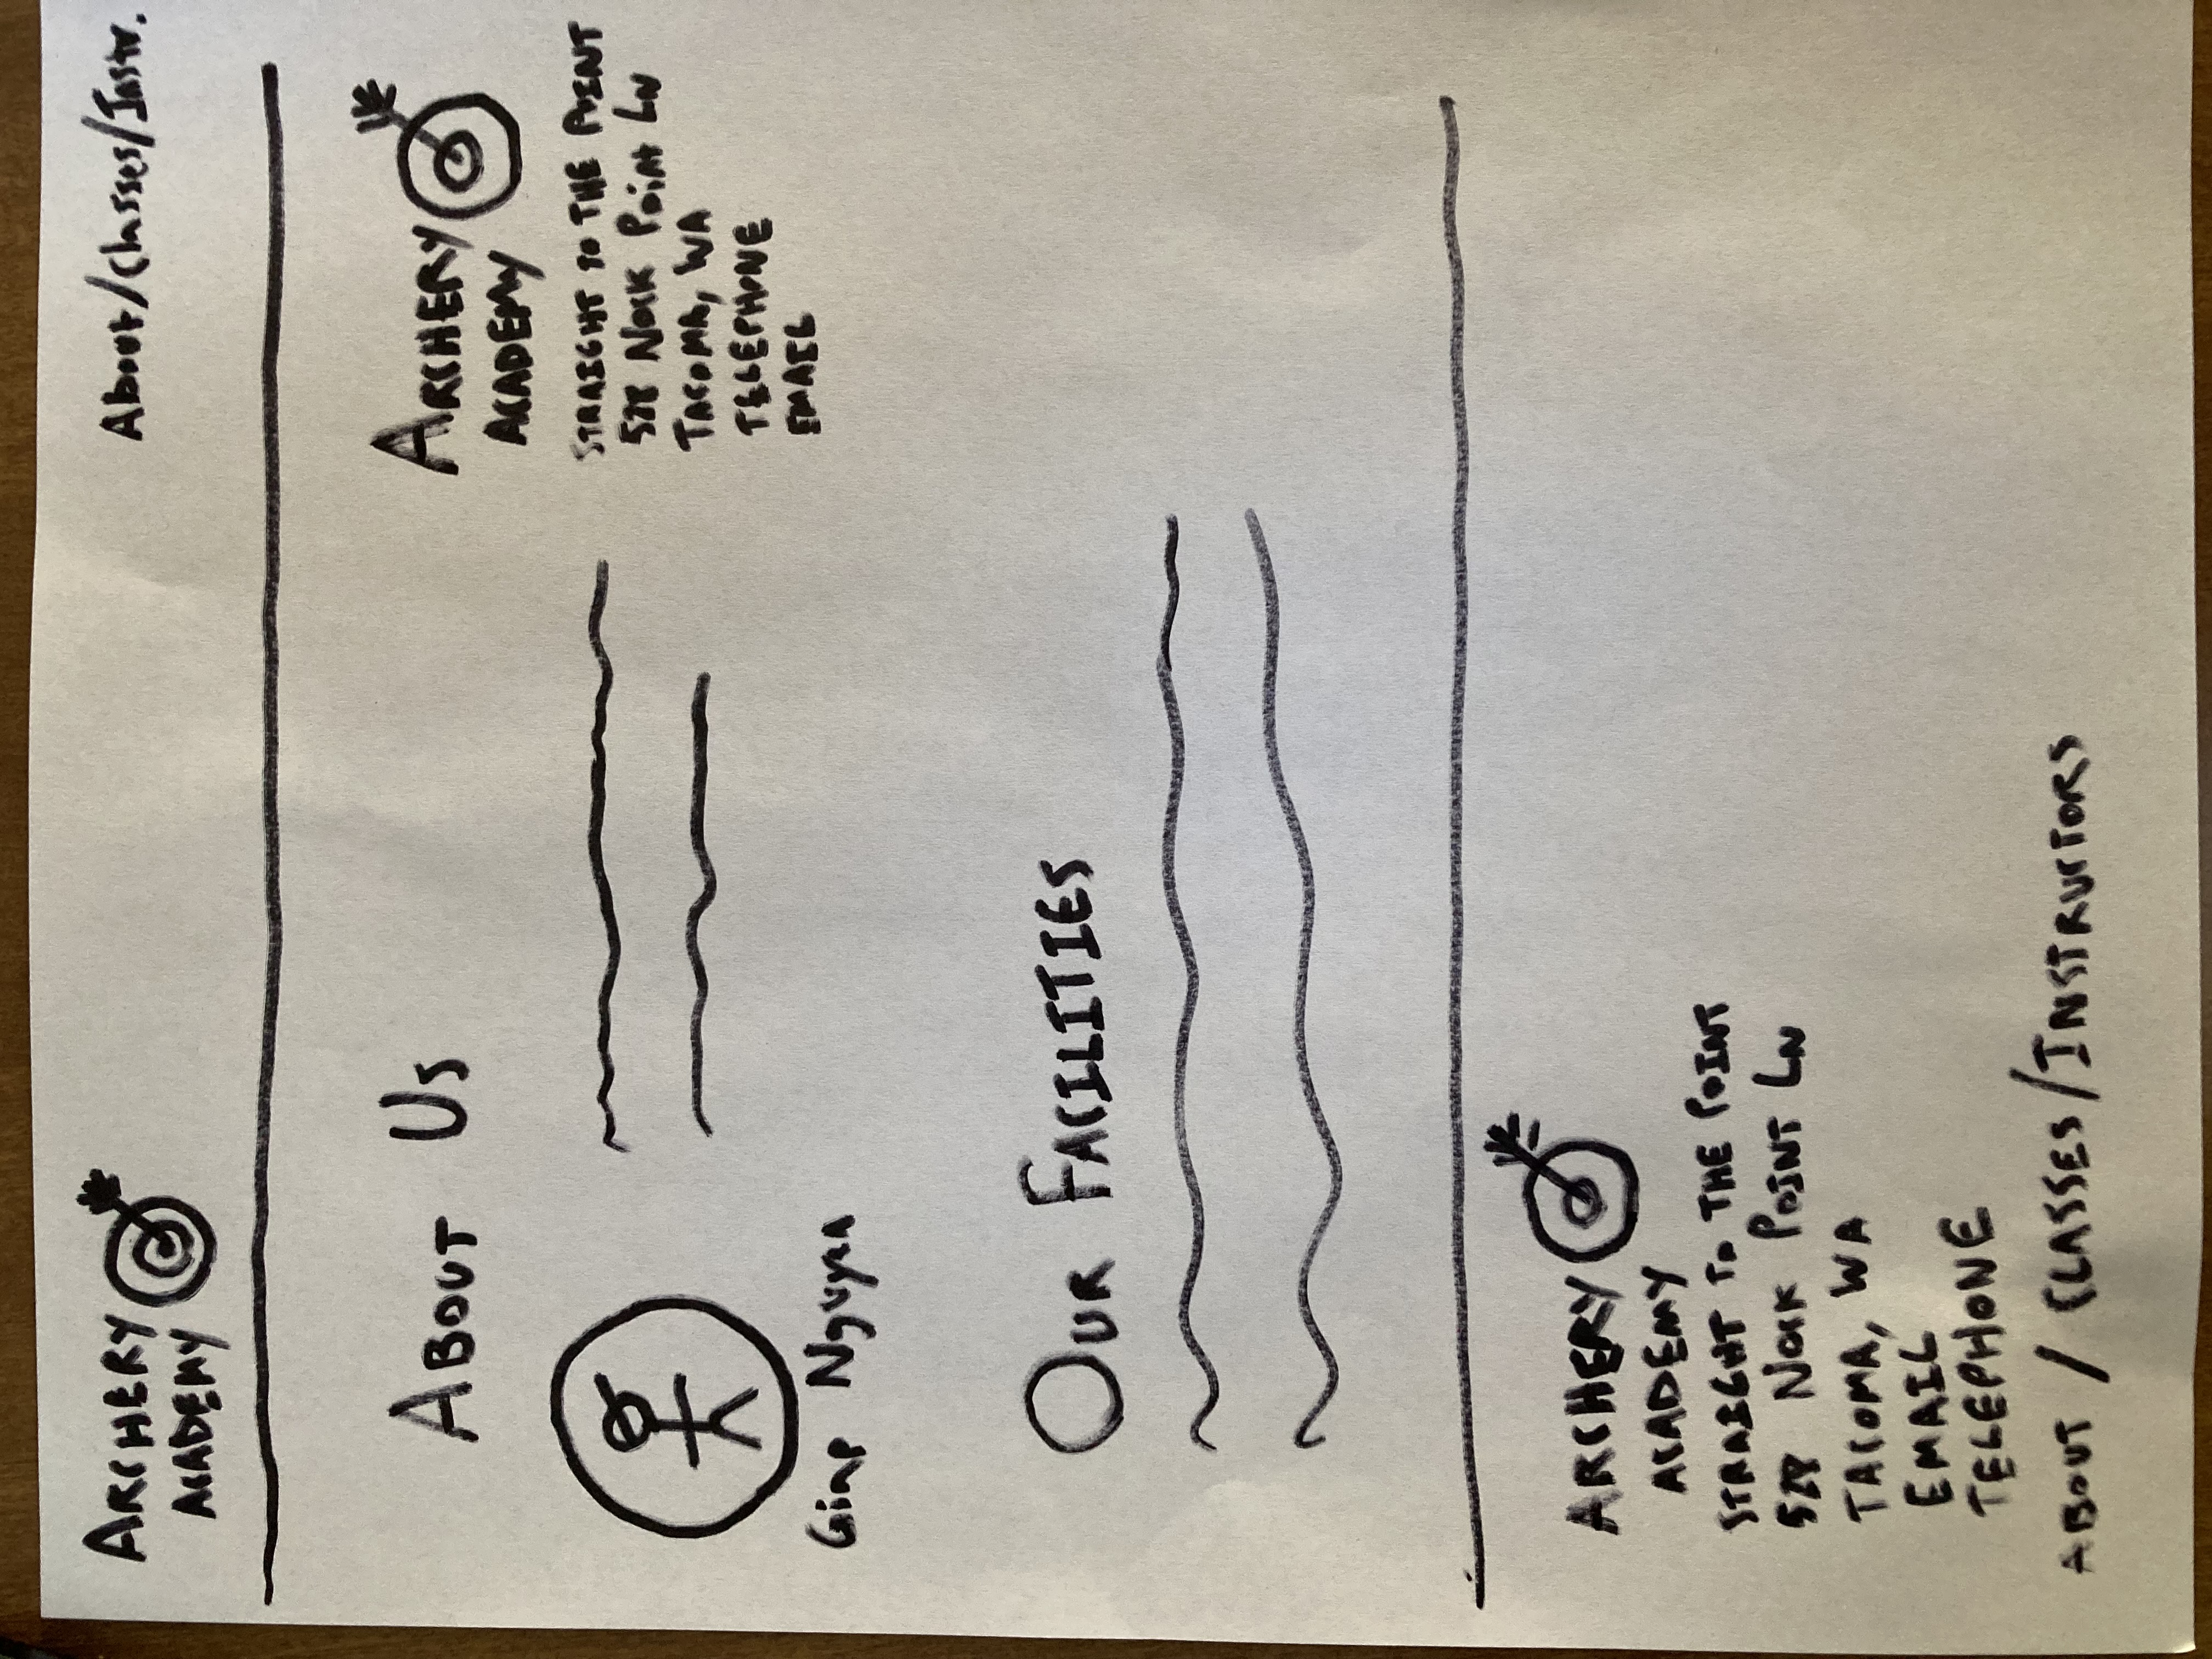 ARCHERY
ACADEMY
About/Classes/Instr.
ABOUT US
Nguyen
ARCHERY
ACADEMY
STRAIGHT TO THE POINT
528 Nock Point LN
TACOMA, WA
TELEPHONE
EMAIL
OUR FACILITIES
ARCHERY
ACADEMY
STRAIGHT TO THE POINT
528 NOCK POINT LN
TACOMA, WA
EMAIL
TELEPHONE
ABOUT / CLASSES/INSTRUCTORS